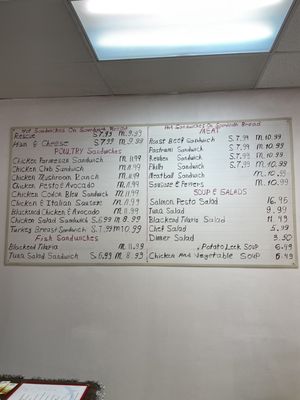 Hot Sandwiches On Sourdough Bread
Rescue S 7.99 M 9.99
Ham & Cheese S 7.99 M 9.99
POULTRY Sandwiches
Chicken Parmesian Sandwich M 11.49
Chicken Club Sandwich M 11.49
Chicken Mushroom Bianca M 11.49
Chicken Pesto & Avocado M 11.99
Chicken Cordon Bleu Sandwich M 11.99
Chicken & Italian Sausage M 11.99
Blackened Chicken & Avocado M 11.99
Chicken Salad Sandwich S 6.99 M 8.99
Turkey Breast Sandwich S 7.99 M 10.99
Fish Sandwiches
Blackened Tilapia M 11.99
Tuna Salad Sandwich S 6.99 M 8.99
Hot Sandwiches On Sourdough Bread
MEAT
Roast Beef Sandwich S 7.99 M 10.99
Pastrami Sandwich S 7.99 M 10.99
Reuben Sandwich S 7.99 M 10.99
Philly Sandwich S 7.99 M 10.99
Meatball Sandwich M 10.99
Sausage & Peppers M 10.99
SOUP & SALADS
Salmon Pesto Salad 16.95
Tuna Salad 9.99
Blackened Tilapia Salad 11.49
Chef Salad 5.99
Dinner Salad 3.50
Potato Leek Soup 6.49
Chicken and Vegetable Soup 6.49